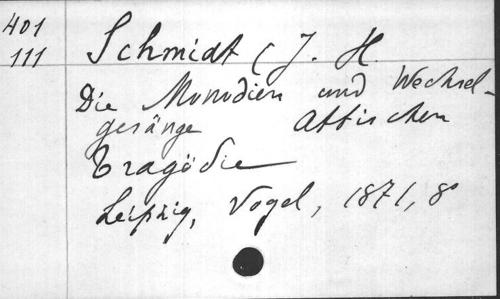 401
111
Schmidt (J. H.
Die Monodien und Wechsel-
gesänge Attischen
Tragödie
Leipzig, Vogel, 1871, 8°